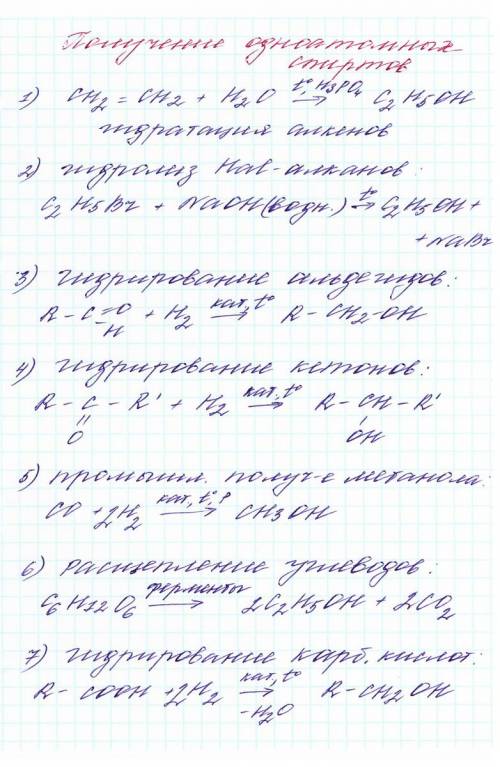 Получение одноатомных
спиртов
1) CH2 = CH2 + H2O t°, H3PO4 → C2H5OH
гидратация алкенов
2) гидролиз Hal-алканов:
C2H5Br + NaOH(водн.) t° → C2H5OH +
+ NaBr
3) гидрирование альдегидов:
R - C = O + H2 кат, t° → R - CH2 - OH
- H
4) гидрирование кетонов:
R - C - R' + H2 кат, t° → R - CH - R'
O OH
5) промышл. получ-е метанола:
CO + 2H2 кат, t°, P → CH3OH
6) расщепление углеводов:
C6H12O6 ферменты → 2C2H5OH + 2CO2
7) гидрирование карб. кислот:
R - COOH + 2H2 кат, t° → R - CH2OH
-H2O